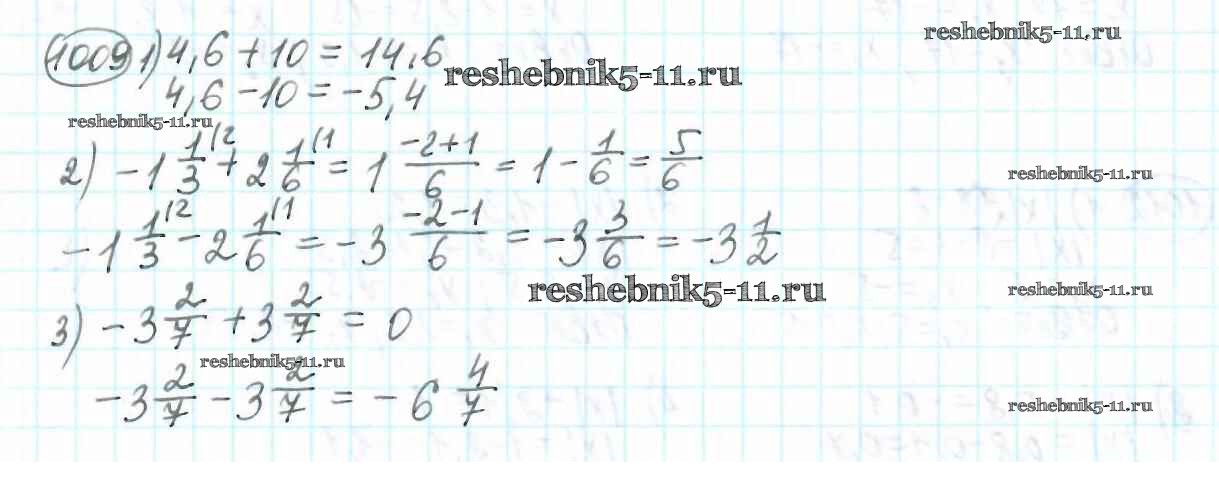 1009 1) 4,6 + 10 = 14,6
reshebnik5-11.ru
reshebnik5-11.ru
4,6 - 10 = -5,4
reshebnik5-11.ru
2) -1 1/3 |2 + 2 1/6 |1 = 1 (-2+1)/6 = 1 - 1/6 = 5/6
reshebnik5-11.ru
-1 1/3 |2 - 2 1/6 |1 = -3 (-2-1)/6 = -3 3/6 = -3 1/2
reshebnik5-11.ru
reshebnik5-11.ru
3) -3 2/7 + 3 2/7 = 0
reshebnik5-11.ru
-3 2/7 - 3 2/7 = -6 4/7
reshebnik5-11.ru